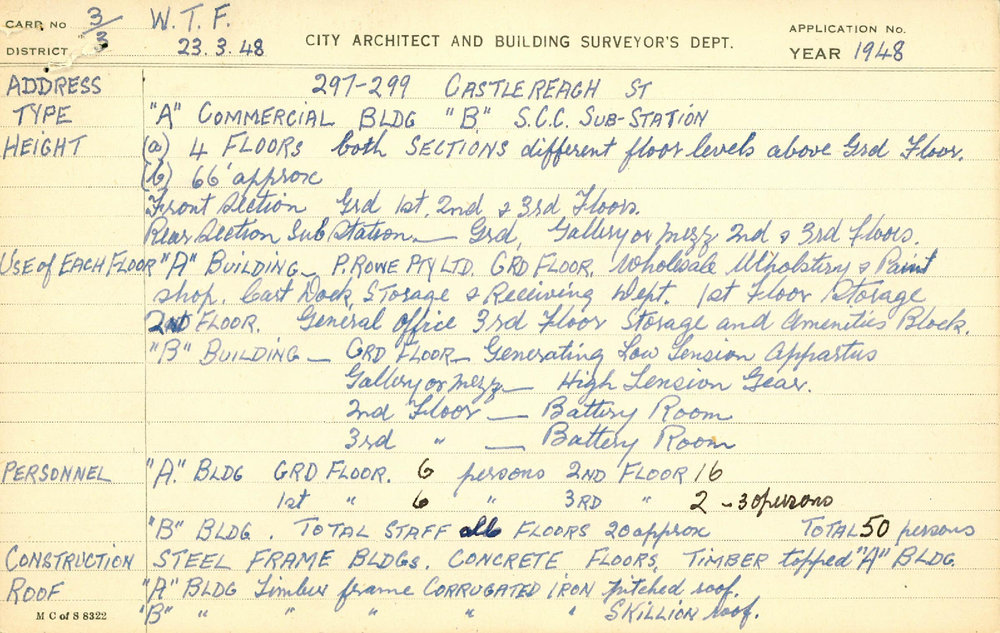 CARD No 3/3 W.T.F. APPLICATION No.
DISTRICT 23.3.48 CITY ARCHITECT AND BUILDING SURVEYOR'S DEPT. YEAR 1948
ADDRESS 297-299 CASTLEREAGH ST
TYPE "A" COMMERCIAL BLDG "B" S.C.C. SUB-STATION
HEIGHT (a) 4 FLOORS both SECTIONS different floor levels above Grd Floor.
(b) 66' approx
Front Section Grd 1st, 2nd & 3rd Floors.
Rear Section Sub Station — Grd, Gallery or Mezz 2nd & 3rd Floors.
USE of EACH FLOOR "A" BUILDING — P. ROWE PTY LTD. GRD FLOOR. Wholesale Upholstery & Paint
shop. Cart Dock, Storage & Receiving Dept. 1st Floor Storage
2ND FLOOR. General Office 3rd Floor Storage and Amenities Block.
"B" BUILDING — GRD FLOOR — Generating Low Tension Appartus
Gallery or Mezz — High Tension Gear.
2nd Floor — Battery Room
3rd " — Battery Room
PERSONNEL "A" BLDG GRD FLOOR. 6 persons 2ND FLOOR 16
1st " 6 " 3RD " 2 - 30 persons
"B" BLDG. TOTAL STAFF all FLOORS 20 approx TOTAL 50 persons
CONSTRUCTION STEEL FRAME BLDGS. CONCRETE FLOORS, TIMBER topped "A" BLDG.
ROOF "A" BLDG Timber frame CORRUGATED IRON pitched roof.
M C of S 8322 "B" " " " " " SKILLION roof.